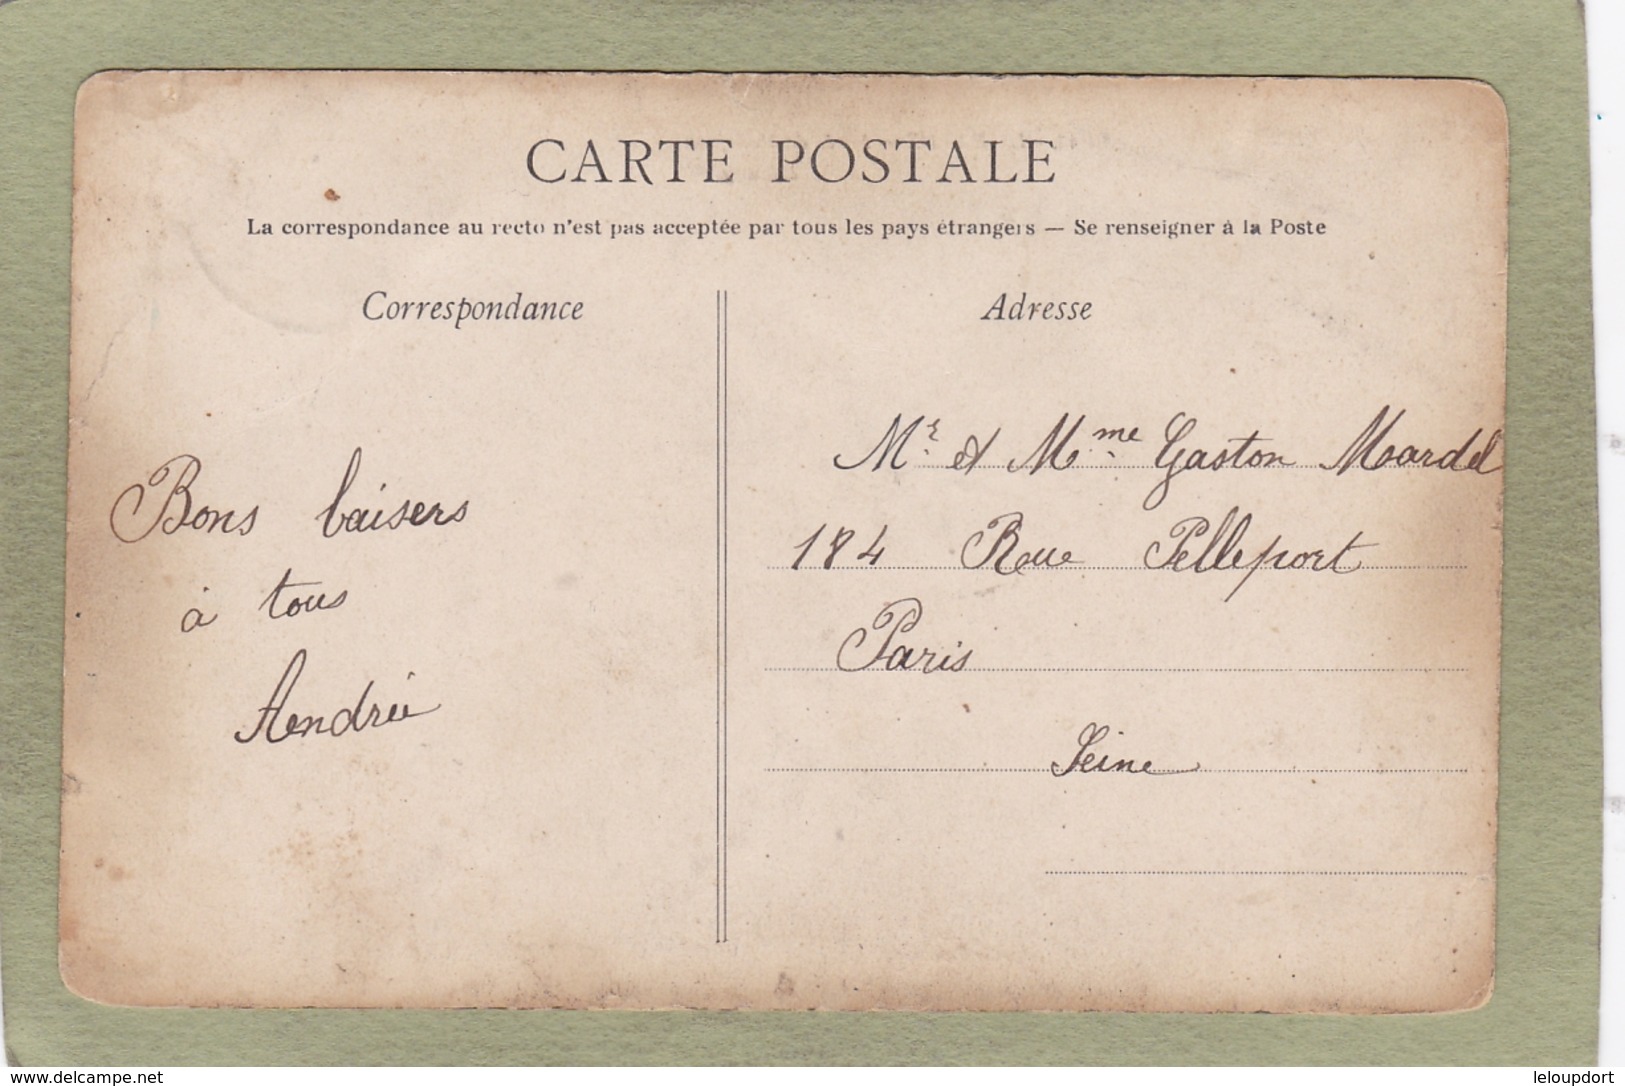 CARTE POSTALE
La correspondance au recto n'est pas acceptée par tous les pays étrangers — Se renseigner à la Poste
Correspondance
Bons baisers
à tous
Andrée
Adresse
Mr. et Mme. Gaston Mardel
184 Rue Pelleport
Paris
Seine
www.delcampe.net
leloupdort